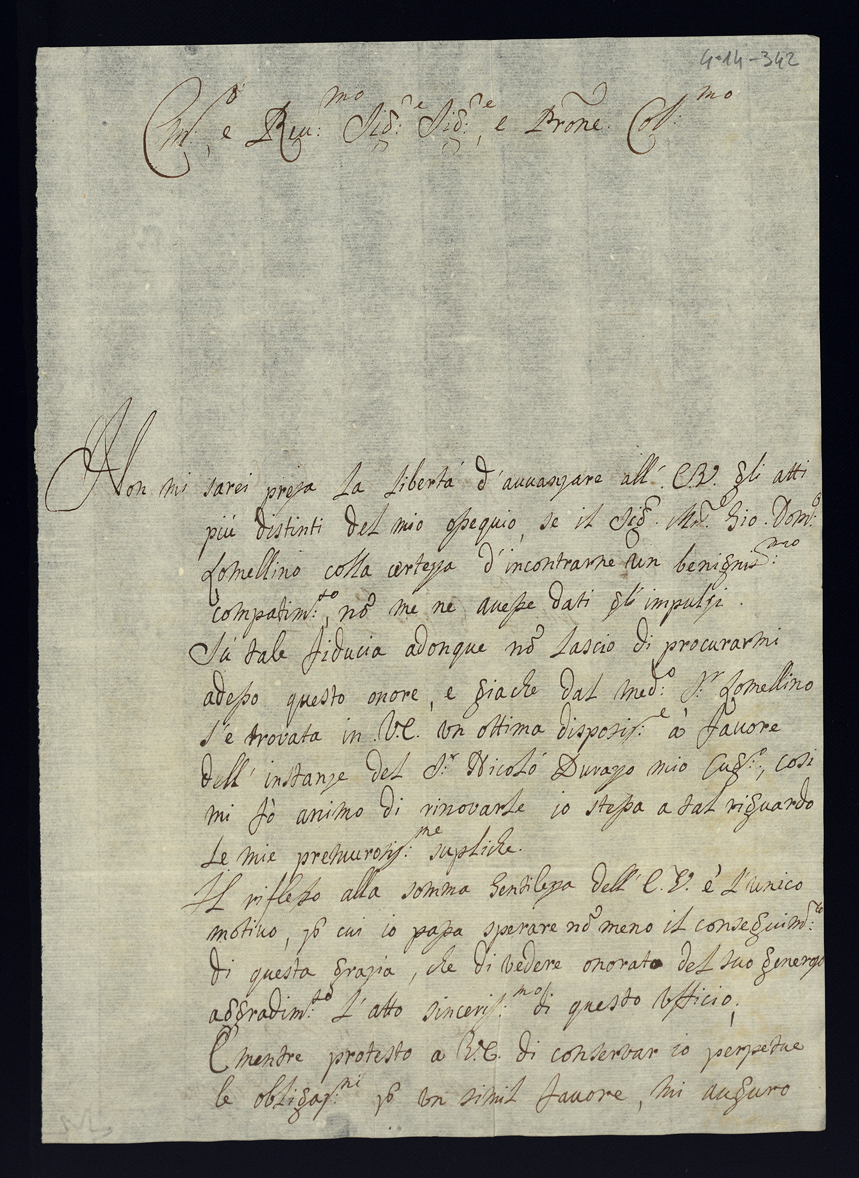 4-14-342
Em:o, e Reu:mo Sig:re Sig:re, e Prõne Col:mo
Non mi sarei presa la libertà d'auuanzare all' E.V. gli atti
più distinti del mio ossequio, se il Sig.r M.r Gio. Dom:o
Lomellino colla certezza d'incontrarne un benignis:mo
compatim:to, nõ me ne auesse dati gl'impulsi.
Sù tale fiducia adonque nõ lascio di procurarmi
adesso questo onore, e giache dal med:o S:r Lomellino
s'è trovata in V.E. vn ottima disposiz:e à fauore
dell' instanze del S:r Nicolò Durazzo mio Cug:o, così
mi fò animo di rinovarle io stessa a tal riguardo
le mie premurosis:me supliche.
Il riflesso alla somma Gentilezza dell' E.V. è l'unico
motiuo, p cui io possa sperare nõ meno il conseguim:to
di questa grazia, che di vedere onorato del suo generoso
aggradim:to l'atto sinceris:mo di questo Vfficio.
E mentre protesto a V.E. di conservar io perpetue
le obligaz:ni p vn simil fauore, mi auguro